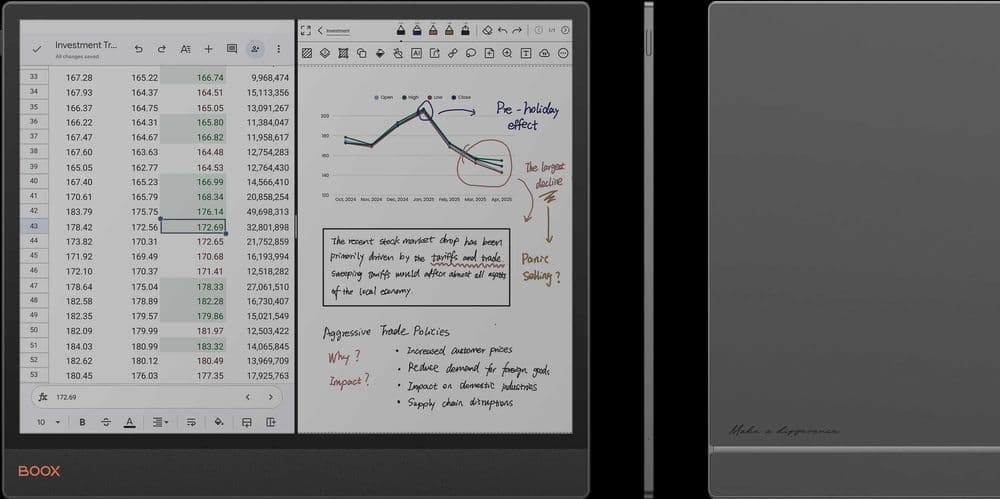 Investment Tr...
All changes saved
33 167.28 165.22 166.74 9,968,474
34 167.93 164.37 164.51 15,113,356
35 166.37 164.75 165.05 13,091,267
36 166.22 164.31 165.80 11,384,047
37 167.47 164.67 166.82 11,958,617
38 167.60 163.63 164.48 12,754,283
39 165.05 162.77 164.53 12,764,430
40 167.40 165.23 166.99 14,566,410
41 170.61 165.79 168.34 20,858,254
42 183.79 175.75 176.14 49,698,313
43 178.42 172.56 172.69 32,801,898
44 173.82 170.31 172.65 21,752,859
45 171.92 169.49 170.68 16,193,994
46 172.10 170.37 171.41 12,518,282
47 178.64 175.04 178.33 27,061,510
48 182.58 178.89 182.28 16,730,407
49 182.35 179.57 179.86 15,021,549
50 182.09 179.99 181.97 12,503,422
51 184.03 180.99 183.32 14,065,845
52 182.62 180.12 180.49 13,969,709
53 180.45 176.03 177.35 17,925,763
fx 172.69
10 B A
Investment
1/1
AI
T
Open High Low Close
200
180
160
140
120
Oct, 2024 Nov, 2024 Dec, 2024 Jan, 2025 Feb, 2025 Mar, 2025 Apr, 2025
Pre-holiday
effect
The largest
decline
Panic
Selling?
The recent stock market drop has been
primarily driven by the tariffs and trade.
Sweeping tariffs would affect almost all aspects
of the local economy.
Aggressive Trade Policies
Why?
Impact?
• Increased customer prices
• Reduce demand for foreign goods
• Impact on domestic industries
• Supply chain disruptions
BOOX
Make a difference